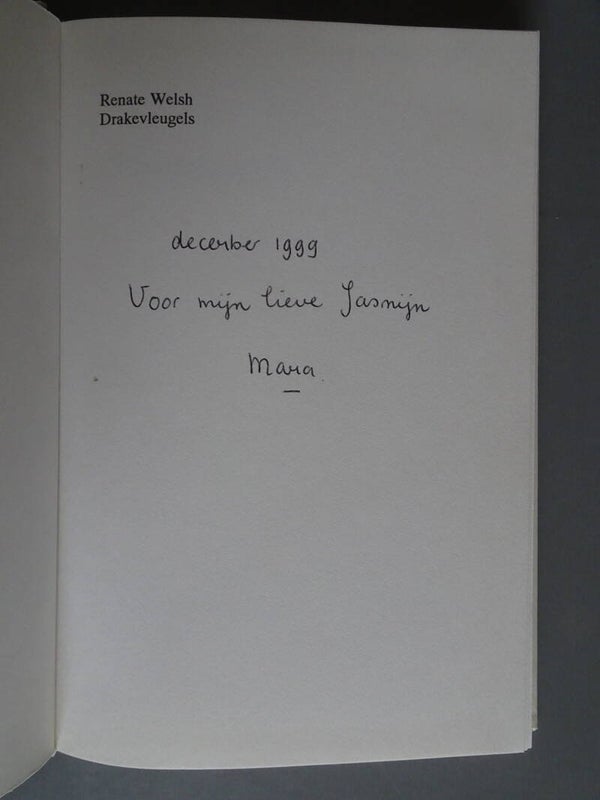 Renate Welsh
Drakevleugels
december 1999
Voor mijn lieve Jasmijn
Mara.